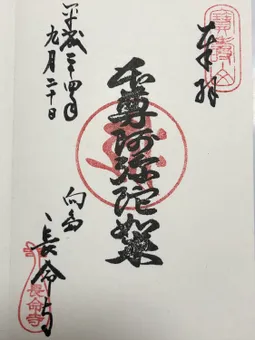 奉拝
寶壽山
本尊阿弥陀如来
向島
長命寺
長命寺
平成二十四年
九月二十日